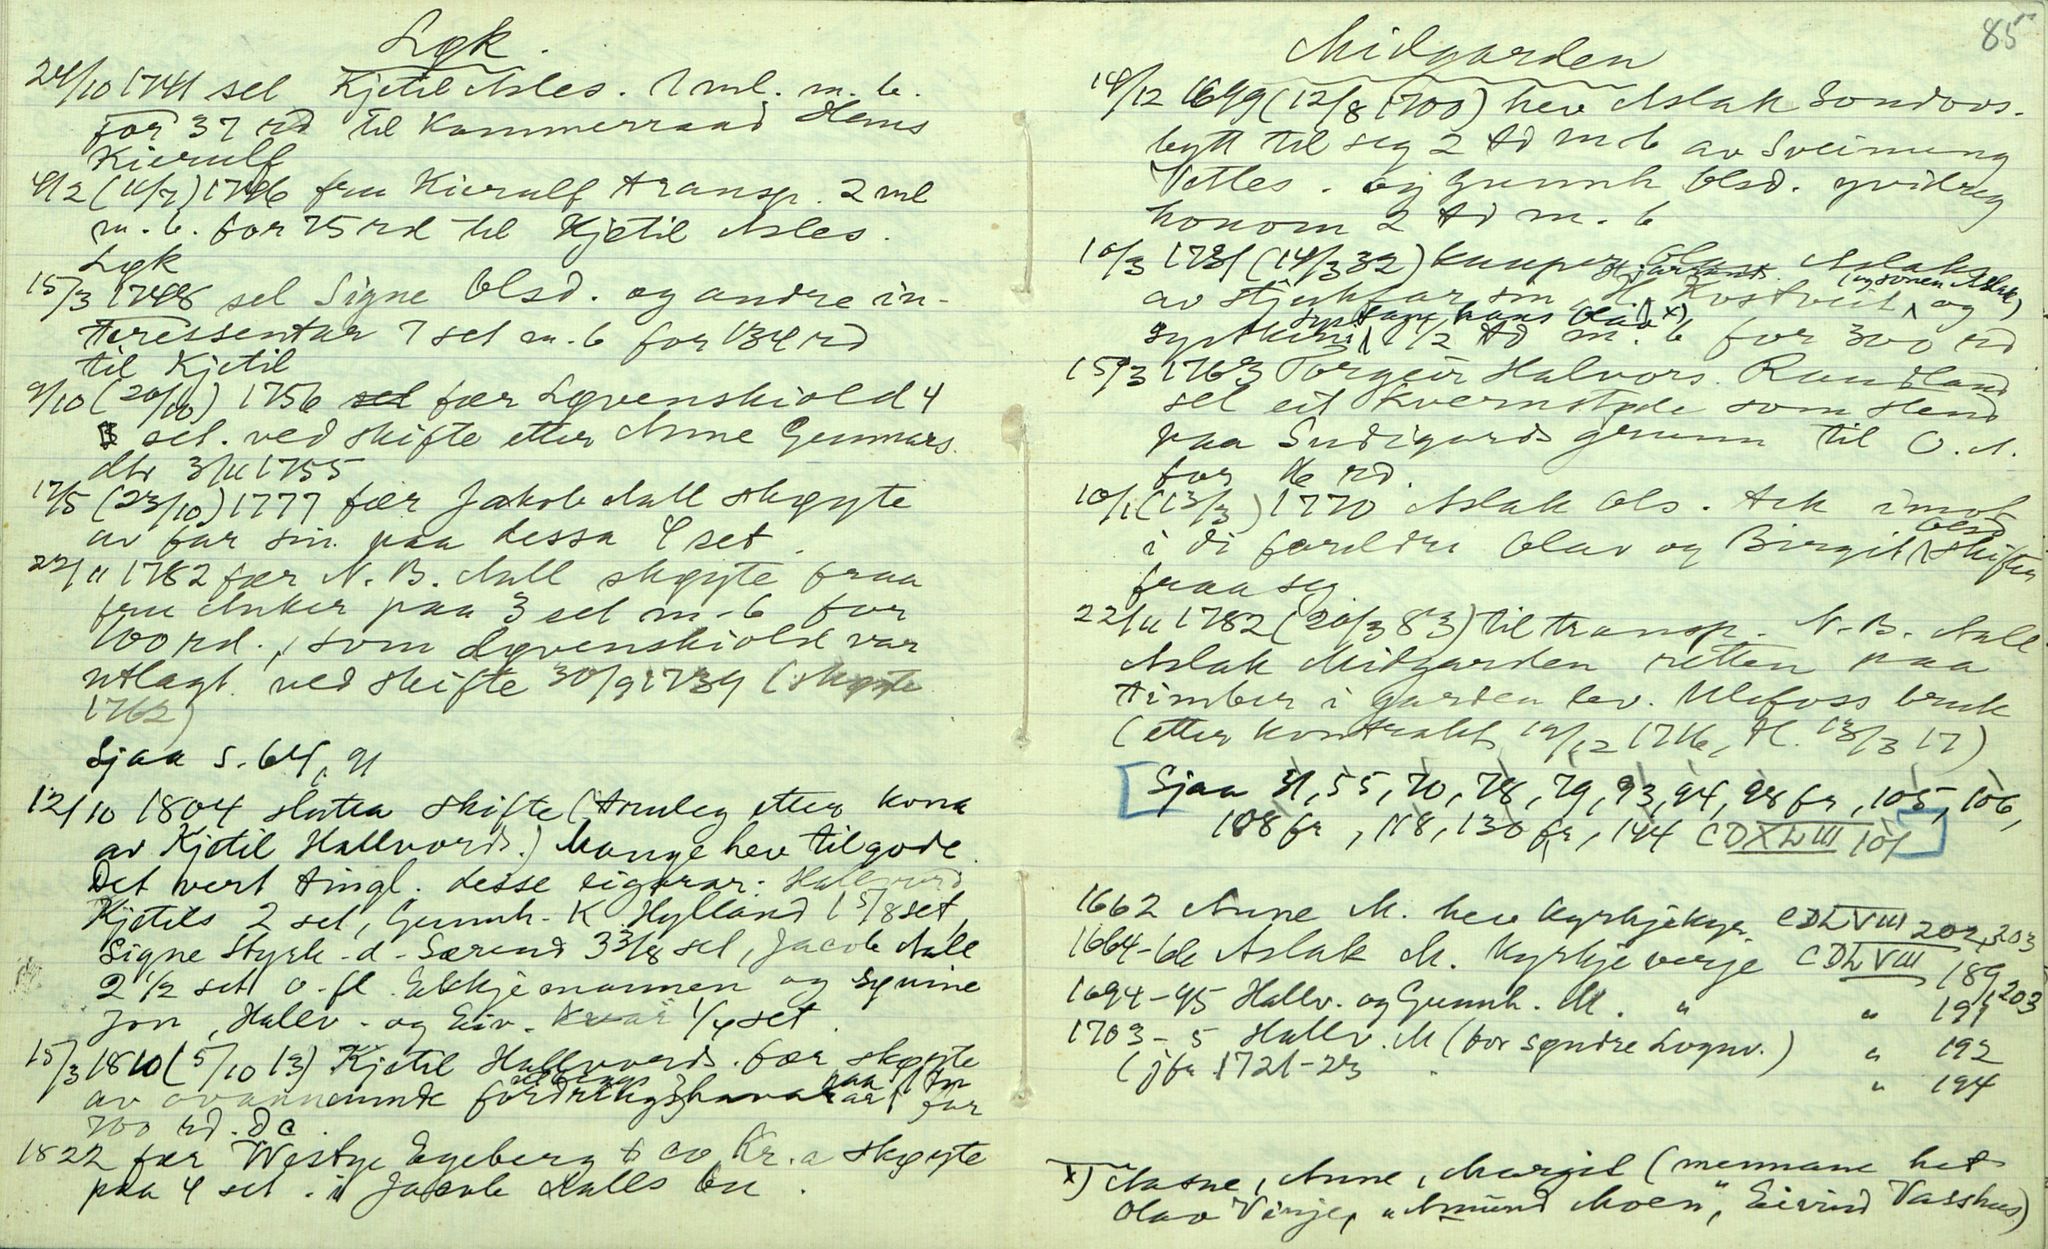 Løk.
24/10 1741 sel Kjetil Asles. 7 ml. m. b.
for 37 rd til Kammerraad Hans
Kierulf
4/2 (11/7) 1746 fru Kierulf transp. 2 ml
m. b. for 75 rd til Kjetil Asles.
Løk
15/3 1748 sel Signe Olsd. og andre in-
teressentar 7 set m. b for 134 rd
til Kjetil
9/10 (20/10) 1756 sel fær Løvenskiold 4
set. ved skifte etter Anne Gunnars
dtr 3/11 1755
17/5 (23/10) 1777 fær Jakob Aall skøyte
av far sin paa dessa 4 set.
22/11 1782 fær N. B. Aall skøyte fraa
fru Anker paa 3 set m. b for
100 rd., som Løvenskiold var
utlagt ved skifte 30/9 1739 (skøyte
1762)
Sjaa s. 64, 91
12/10 1804 slutta skifte (Arnleg etter kona
av Kjetil Hallvords.) Mange hev tilgode.
Det vert tingl. desse eigarar: Hallvord
Kjetils 2 set, Gunnh. K Hylland 1 5/8 set,
Signe Styrk-d- Særend 3 3/8 set, Jacob Aall
2 1/2 set o. fl. Ekkjemannen og sønine
Jon, Hallv. og Eiv. kvar 1/4 set.
15/3 1810 (5/10 13) Kjetil Hallvords. fær skøyte
av ovannemnde fordringshavarar for
700 rd. dc.
1822 fær Westye Egeberg & co Kr.a skøyte
paa 4 set. i Jacob Aalls bu.
85
Midgarden
14/12 1699 (12/8 1700) hev Aslak Sondovs.
bytt til seg 2 td m b av Sveinung
Vetles. og Gunnh Olsd. yvidrug
honom 2 td m. b
10/3 1731 (14/3 32) kauper Olav Aslaks.
av stykfar sin H. Hjarrands. Kostveit (og sonen Aslak) og
syskini, systane hans Olav x) 1/2 td m. b for 300 rd
15/3 1763 Torgeir Halvors. Raudland
sel eit kvernstøde som stend
paa Sudigards grunn til O. A.
for 16 rd.
10/1 (13/3) 1770 Aslak Ols. tek imot
i di foreldri Olav og Birgit Olsd skifter
fraa seg
22/11 1782 (20/3 83) til transp. N. B. Aall
Aslak Midgarden retten paa
timber i garden lev. Ulefoss bruk
(etter kontrakt 19/12 1716, tl. 13/3 17)
Sjaa 31, 55, 70, 78, 79, 93, 94, 98 fr, 105, 106,
108 fr, 118, 130 fr, 144 CDXLIII 101
1662 Anne M. hev kyrkjekyr. CDLVIII 202, 203
1664-66 Aslak M. Kyrkjeverje CDLVIII 189, 203
1694-95 Hallv. og Gunnh. M. " " 191
1703-5 Hallv. M (for søndre Lognv.) " 192
(jfr 1721-23 " 194
x) Aasne, Anne, Margit (mennane het
Olav Vinje, "Amund Moen", Eivind Vasshus)